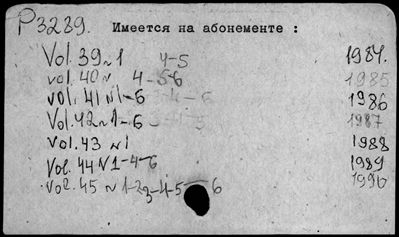 P3289. Имеется на абонементе :
Vol. 39 N 1 4-5 1984.
vol. 40 N 4-56 1985
vol. 41 N1-6 3-4-6 1986
Vol. 42 N 1-6 3-4-5 1987
Vol. 43 N1 1988
Vol. 44 N 1-4-6 1989
vol. 45 N 1-23-4-5-6 1990